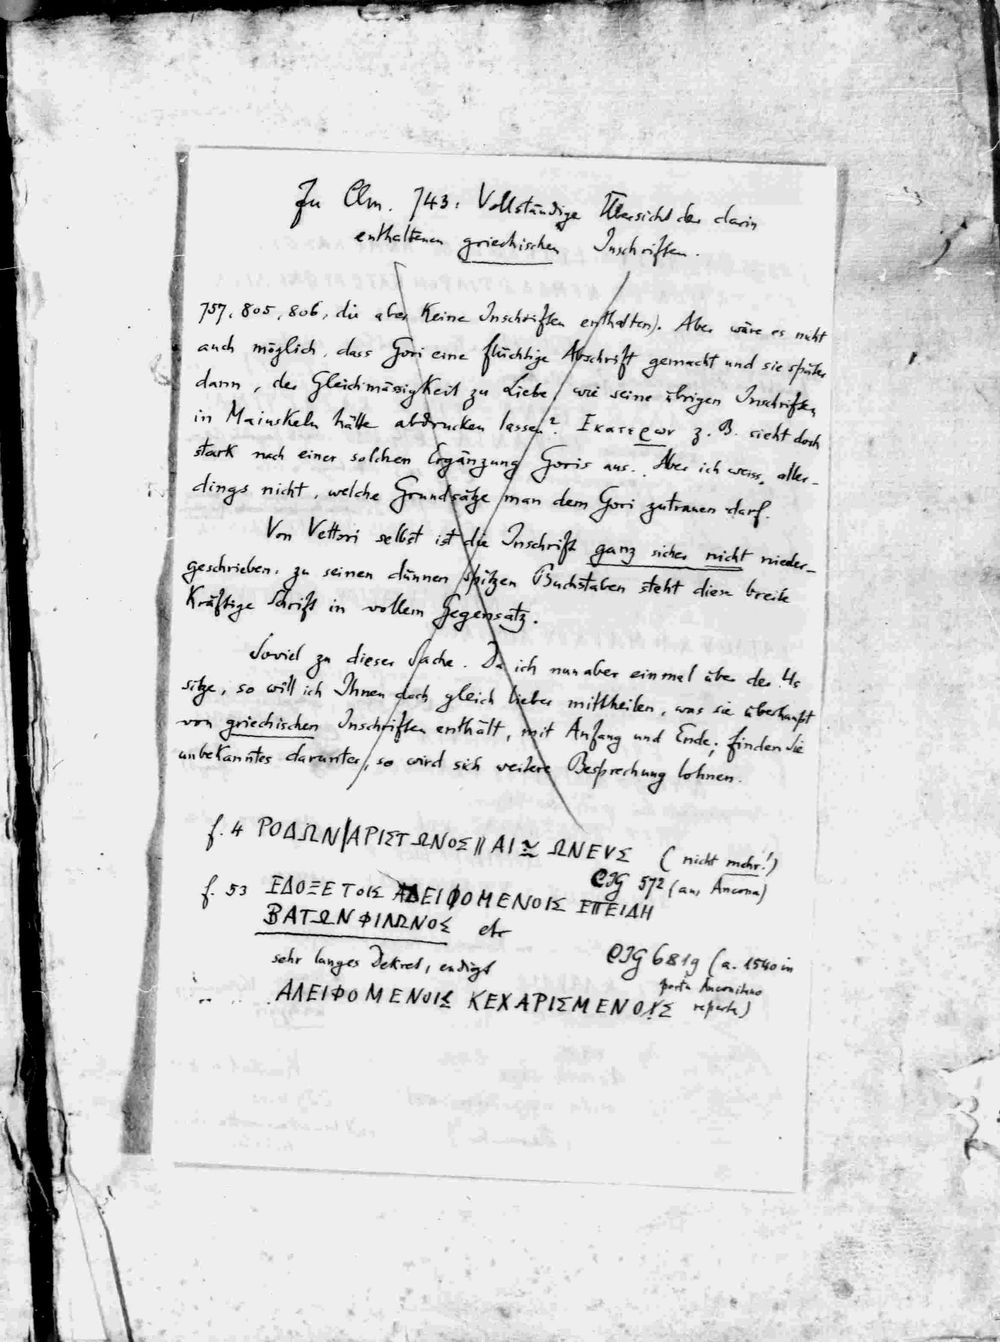 Zu Clm. 743: Vollständige Übersicht der darin
enthaltenen griechischen Inschriften.
757, 805, 806, die aber keine Inschriften enthalten). Aber wäre es nicht
auch möglich, dass Gori eine flüchtige Abschrift gemacht und sie später
dann, der Gleichmässigkeit zu Liebe, wie seine übrigen Inschriften
in Majuskeln hätte abdrucken lassen? Εκατερων z. B. sieht doch
stark nach einer solchen Ergänzung Goris aus. Aber ich weiss, aller-
dings nicht, welche Grundsätze man dem Gori zutrauen darf.
Von Vettori selbst ist die Inschrift ganz sicher nicht nieder-
geschrieben, zu seinen dünnen spitzen Buchstaben steht diese breite
kräftige Schrift in vollem Gegensatz.
Soviel zu dieser Sache. Da ich nun aber einmal über der Hs
sitze, so will ich Ihnen doch gleich lieber mittheilen, was sie überhaupt
von griechischen Inschriften enthält, mit Anfang und Ende; finden Sie
unbekanntes darunter, so wird sich weitere Besprechung lohnen.
f. 4 ΡΟΔΩΝ|ΑΡΙΣΤΩΝΟΣ||ΑΙ ΩΝΕΥΣ (nicht mehr!)
CIG 572 (aus Ancona)
f. 53 ΕΔΟΞΕ ΤΟΙΣ ΑΛΕΙΦΟΜΕΝΟΙΣ ΕΠΕΙΔΗ
ΒΑΤΩΝ ΦΙΛΩΝΟΣ etc
sehr langes Dekret, endigt
CIG 6819 (a. 1540 in
portu Anconitano
reperta)
" " ΑΛΕΙΦΟΜΕΝΟΙΣ ΚΕΧΑΡΙΣΜΕΝΟΙΣ